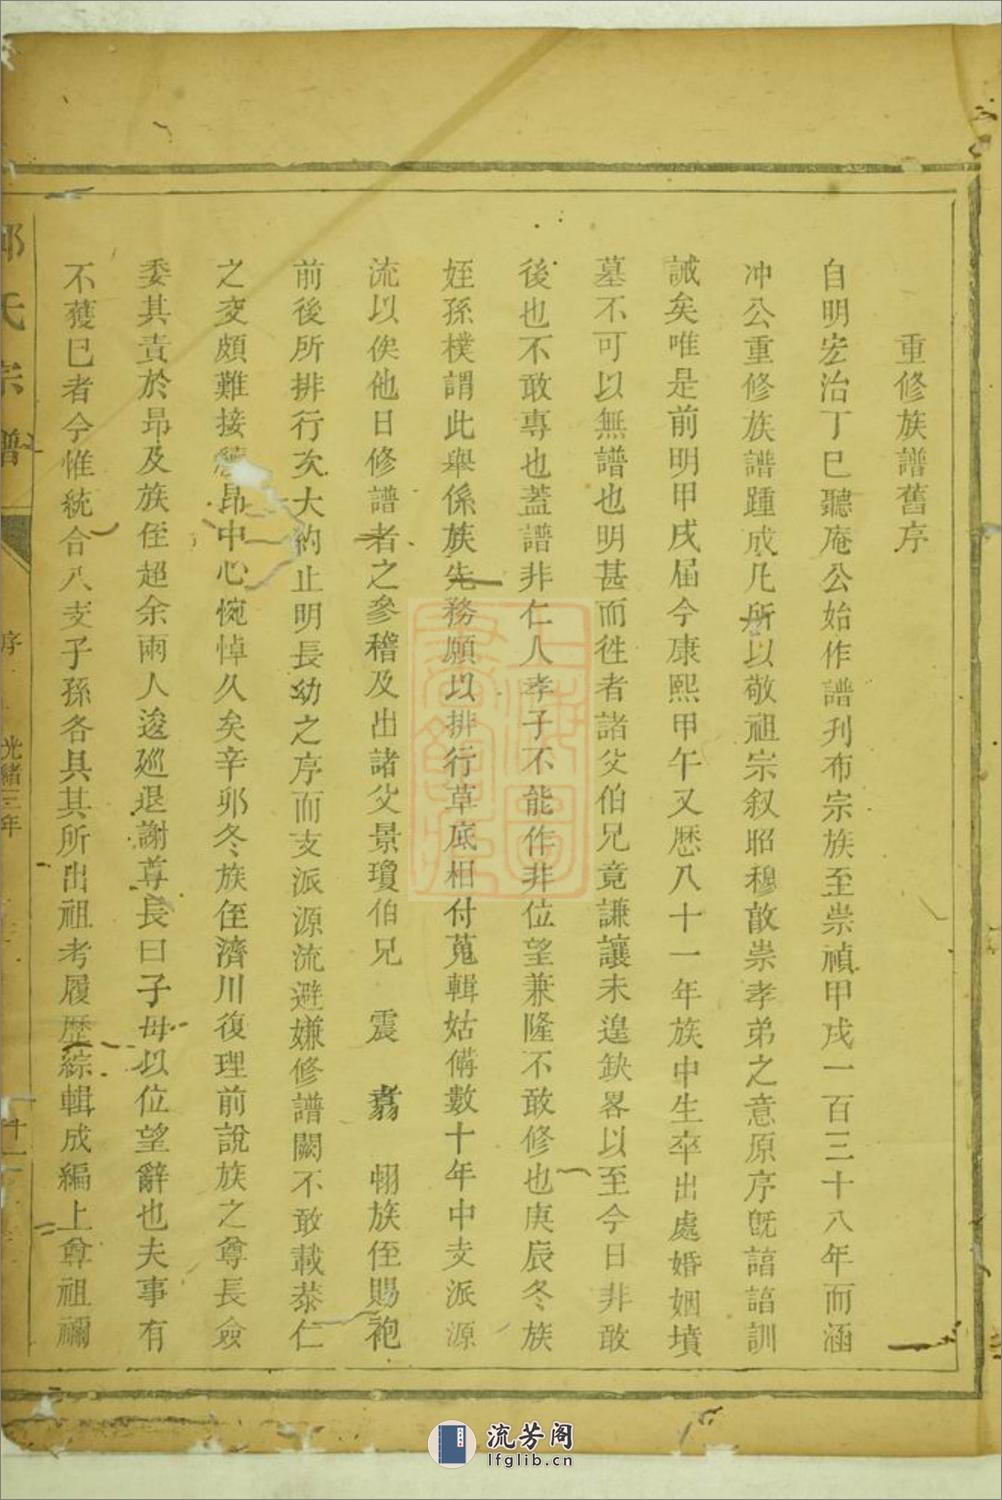 重修族譜舊序
自明宏治丁巳聽庵公始作譜刋布宗族至崇禎甲戌一百三十八年而涵
冲公重修族譜踵成凡所以敬祖宗叙昭穆敦崇孝弟之意原序旣諄諄訓
誡矣唯是前明甲戌届今康熙甲午又歷八十一年族中生卒出處婚姻墳
墓不可以無譜也明甚而徃者諸父伯兄竟謙讓未遑缺畧以至今日非敢
後也不敢專也蓋譜非仁人孝子不能作非位望兼隆不敢修也庚辰冬族
姪孫樸謂此舉係族先務願以排行草底相付蒐輯姑備數十年中支派源
流以俟他日修譜者之參稽及出諸父景瓊伯兄 震 翥 栩族侄賜袍
前後所排行次大約止明長幼之序而支派源流避嫌修譜闕不敢載恭仁
之交頗難接續昂中心惋悼久矣辛卯冬族侄濟川復理前說族之尊長僉
委其責於昂及族侄超余兩人逡廵退謝尊長曰子毋以位望辭也夫事有
不獲已者今惟統合八支子孫各具其所出祖考履歷綜輯成編上尊祖禰
氏宗譜
序
光緒三年
十一
上海圖書館藏
流芳阁
lfglib.cn